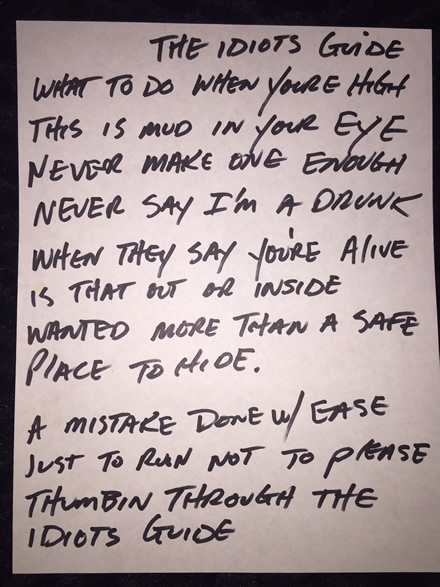 THE IDIOTS GUIDE
WHAT TO DO WHEN YOURE HIGH
THIS IS MUD IN YOUR EYE
NEVER MAKE ONE ENOUGH
NEVER SAY I'M A DRUNK
WHEN THEY SAY YOU'RE ALIVE
IS THAT OUT OR INSIDE
WANTED MORE THAN A SAFE
PLACE TO HIDE.
A MISTAKE DONE W/ EASE
JUST TO RUN NOT TO PLEASE
THUMBIN THROUGH THE
IDIOTS GUIDE